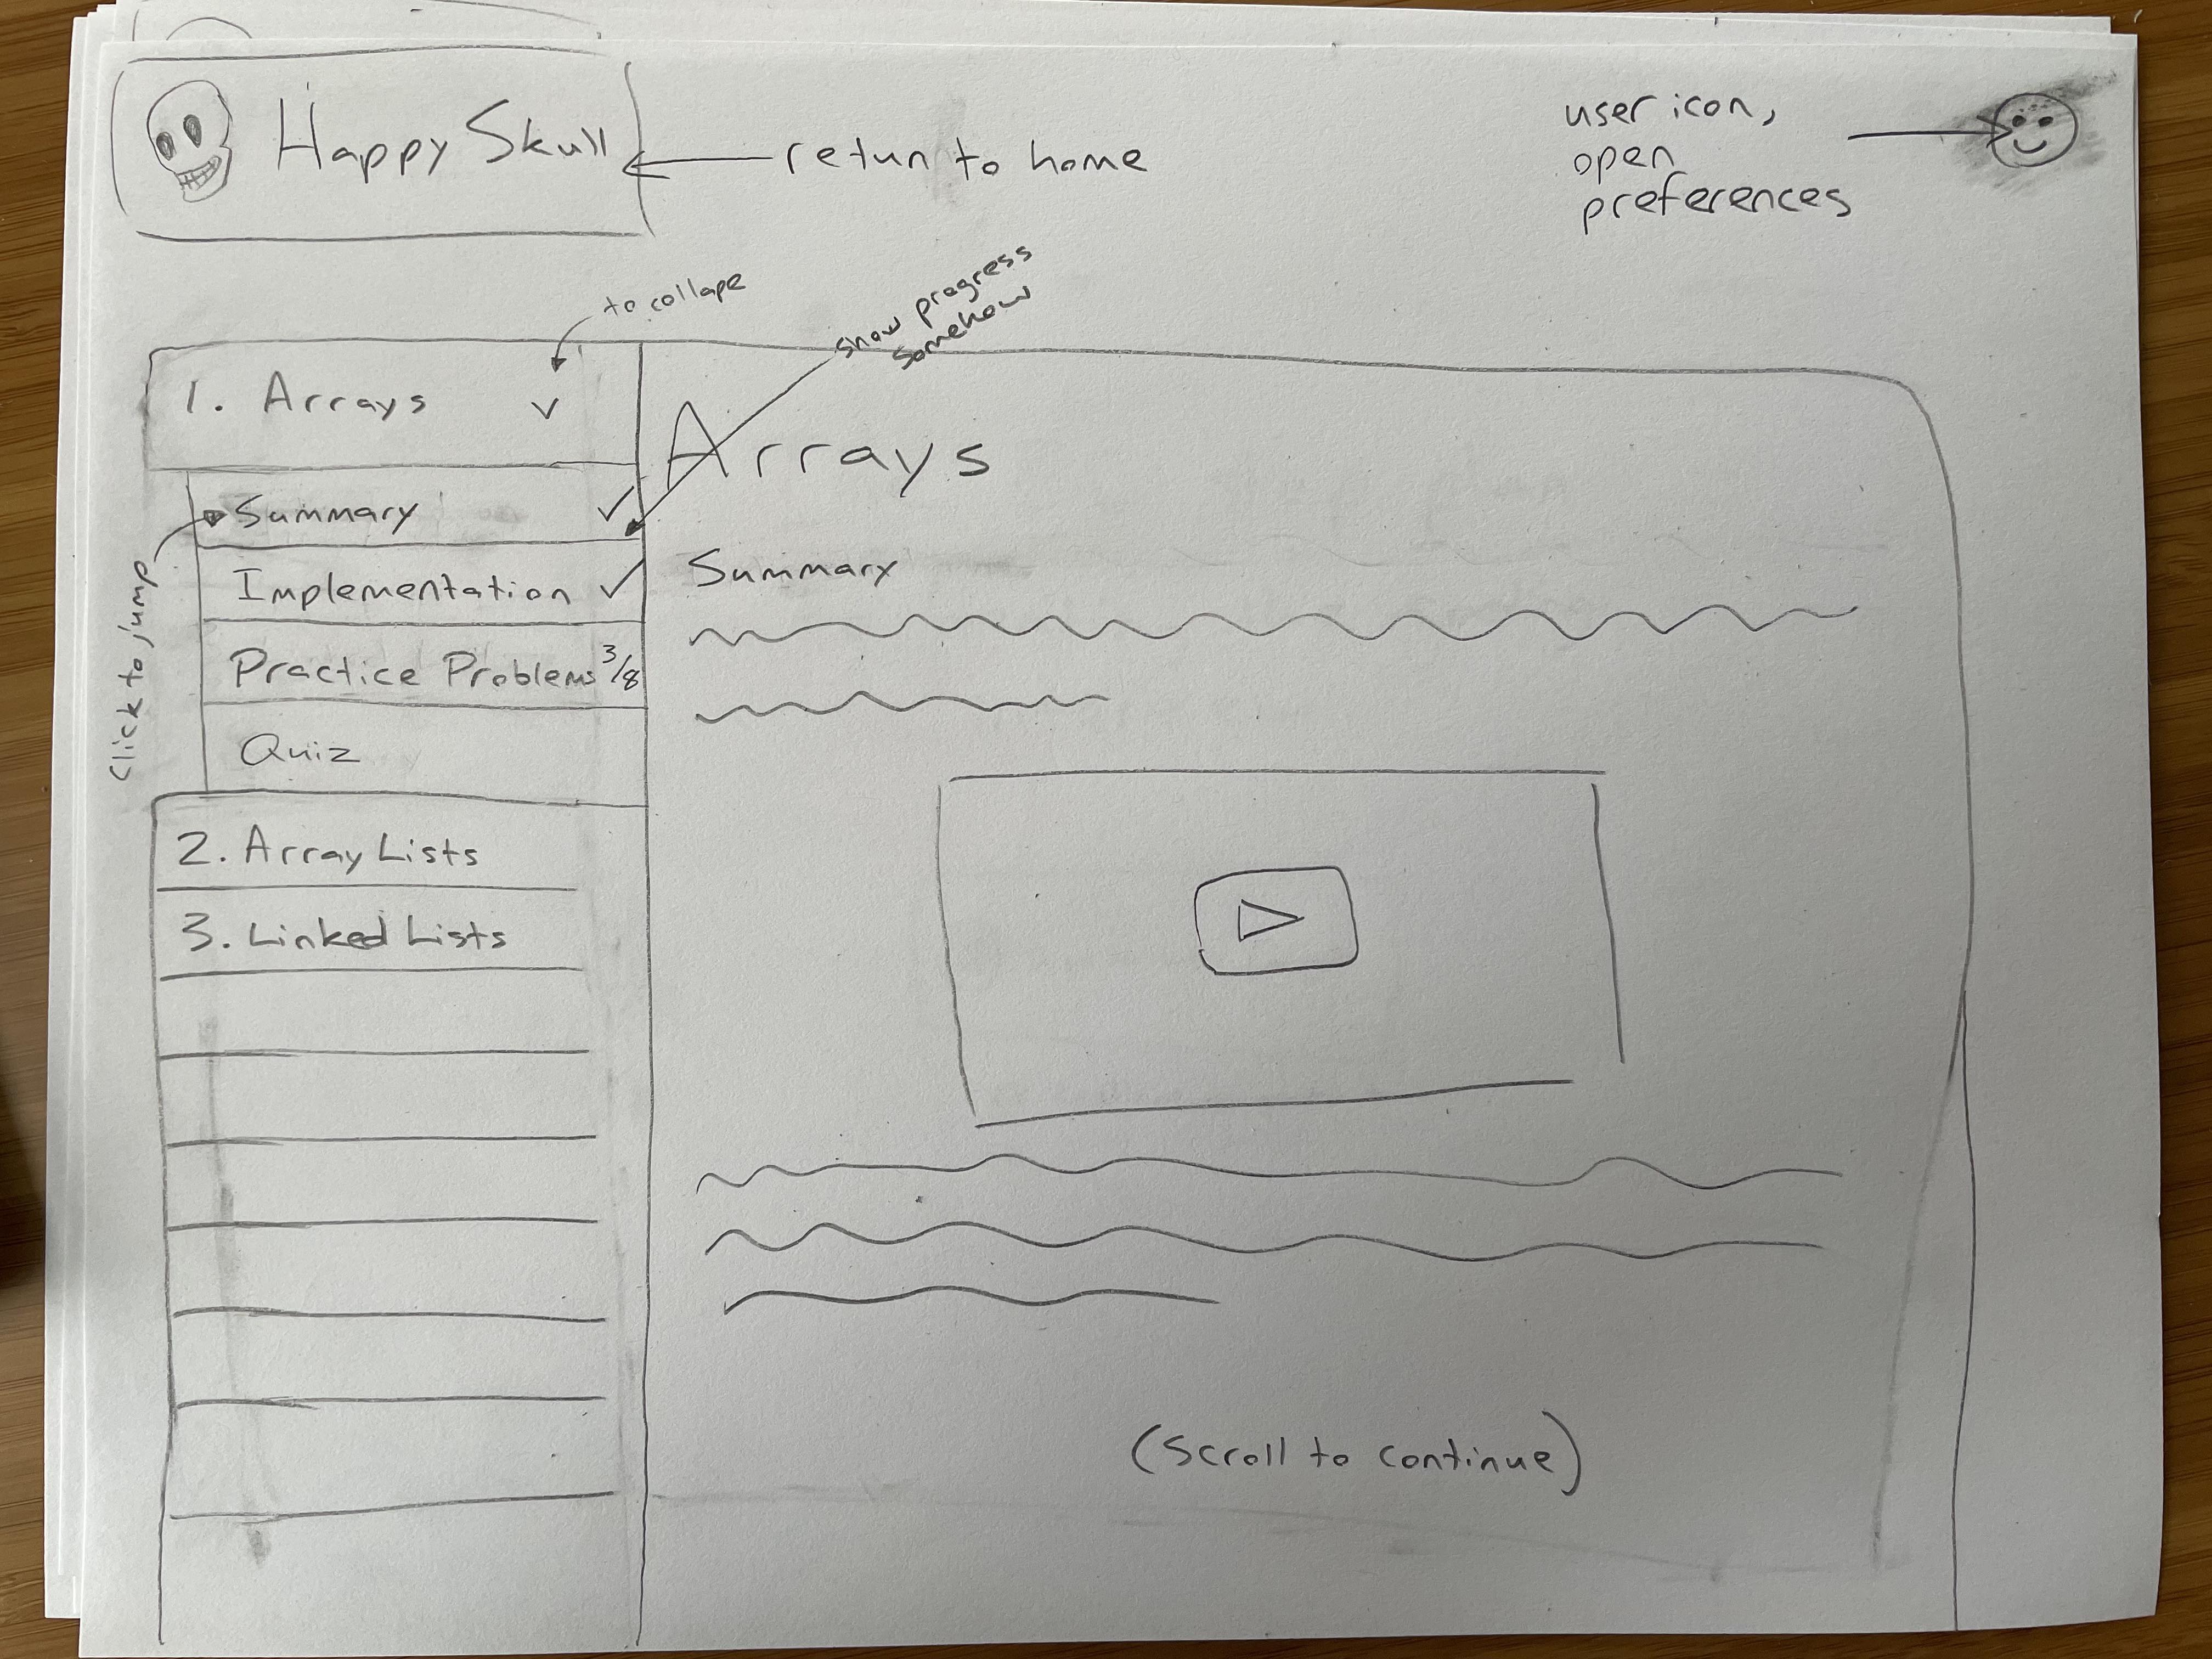 Happy Skull
retun to home
user icon,
open
preferences
to collape
show progress
somehow
1. Arrays
Summary ✓
Implementation ✓
Practice Problems 3/8
Quiz
Click to jump
2. Array Lists
3. Linked Lists
Arrays
Summary
(scroll to continue)